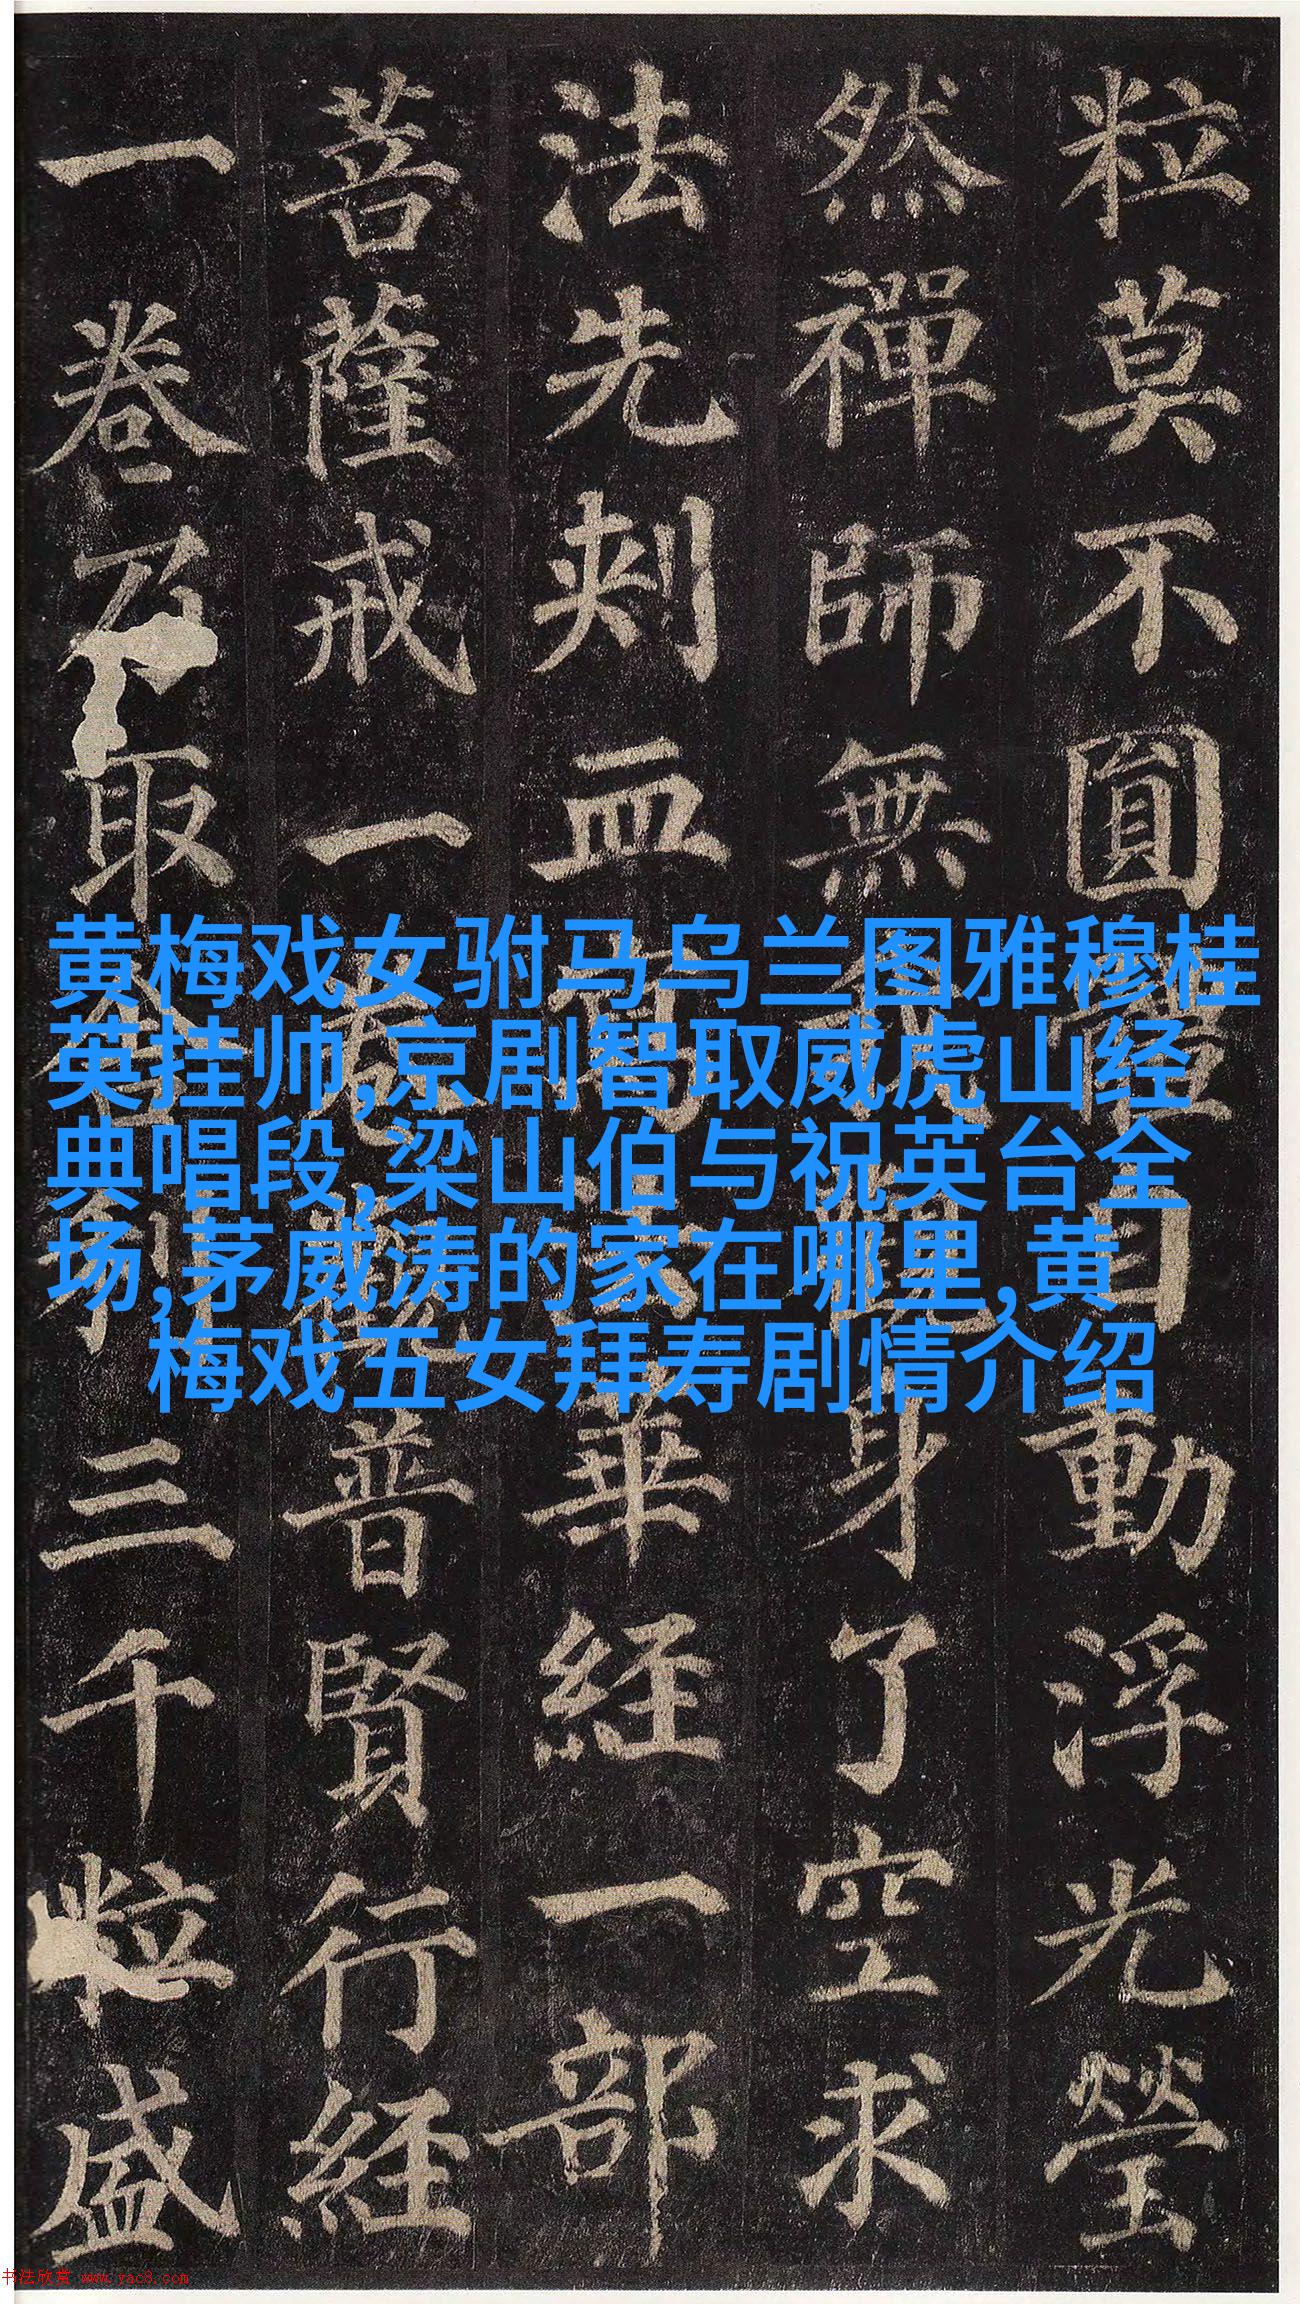 粒莫不圓體自動浮光瑩
然禪師無我觀身了空求
法先刺血寫法華經一部
菩薩戒一卷觀普賢行經
一卷乃取舍利三千粒盛
黄梅戏女驸马乌兰图雅穆桂
英挂帅,京剧智取威虎山经
典唱段,梁山伯与祝英台全
场,茅威涛的家在哪里,黄
梅戏五女拜寿剧情介绍
书法欣赏 www.yac8.com